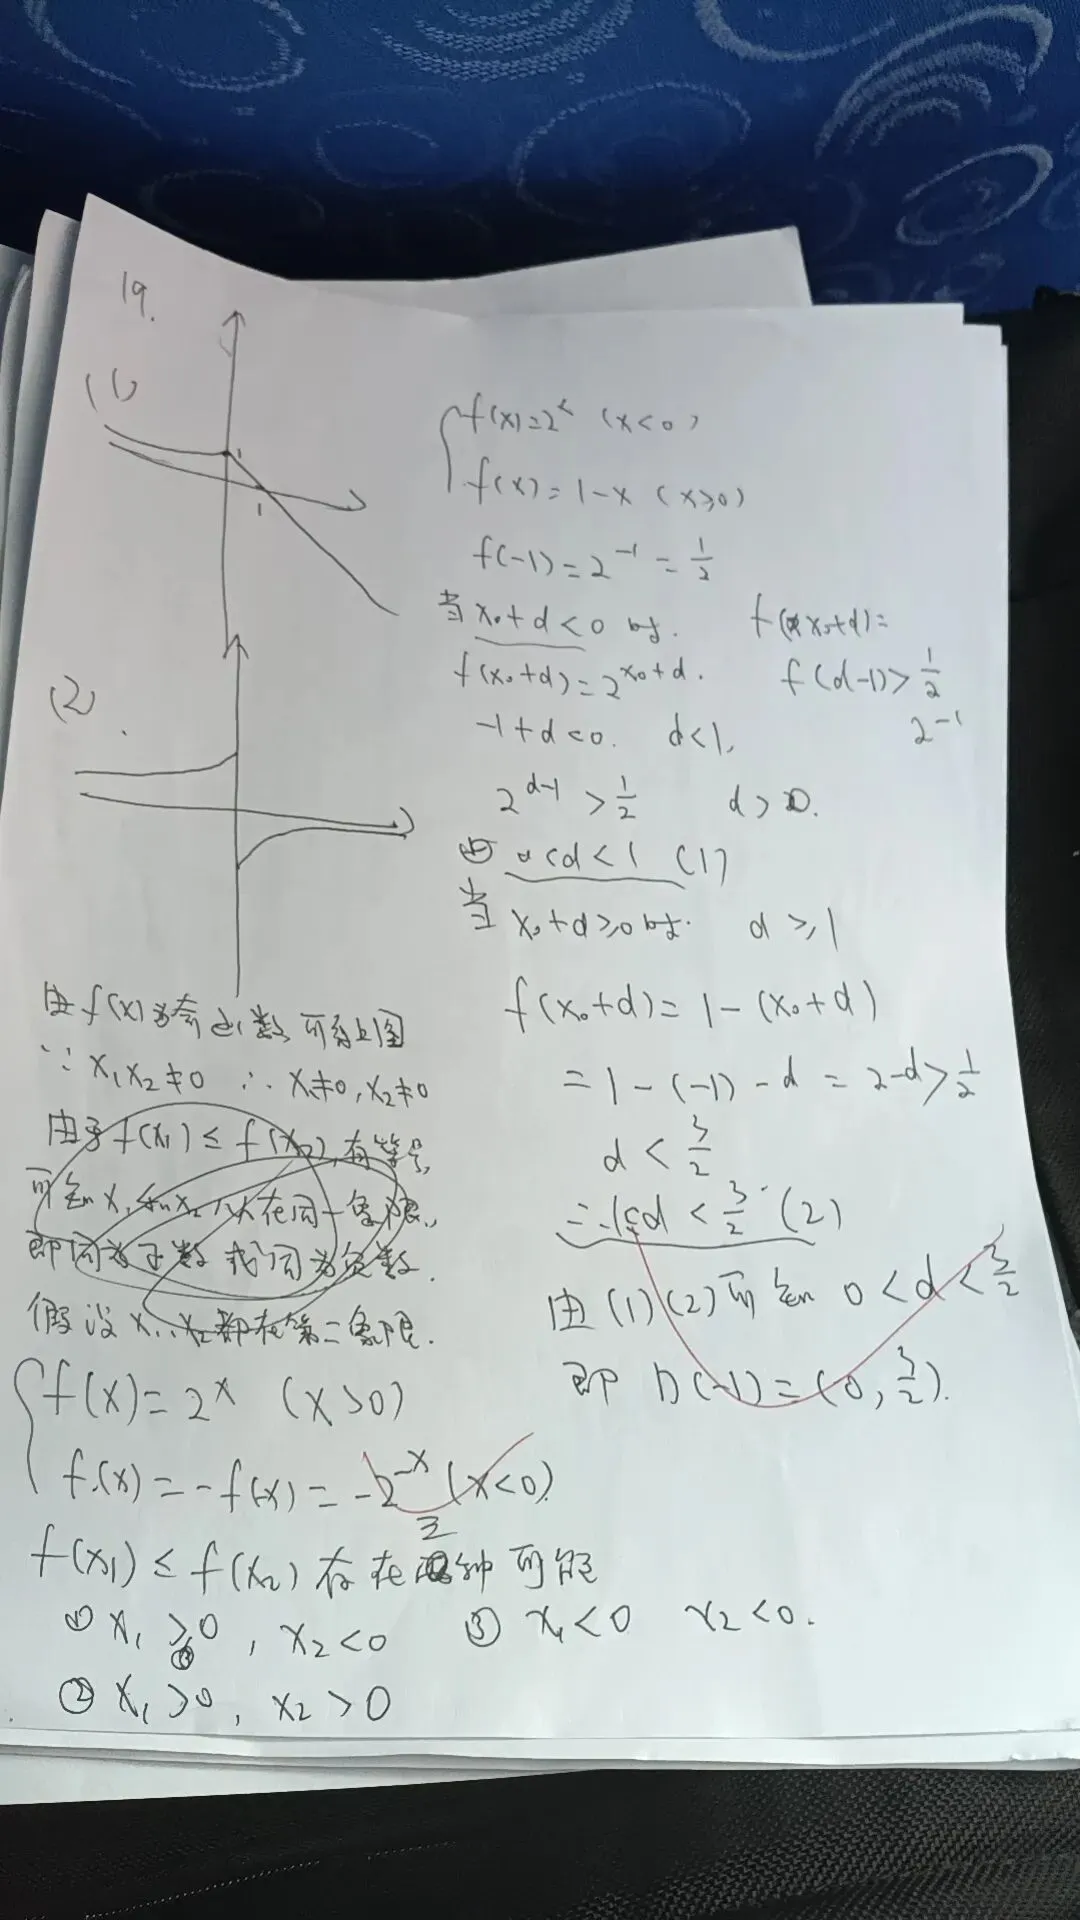 19.
(1)
1
1
{ f(x)=2^x (x<0)
f(x)=1-x (x≥0)
f(-1)=2^{-1}=1/2
当 x₀+d<0 时.
f(x₀+d)=
f(x₀+d)=2^{x₀+d}.
f(d-1)>1/2
-1+d<0. d<1,
2^{-1}
2^{d-1}>1/2 d>0.
0<d<1 (1)
当 x₀+d≥0时. d≥1
f(x₀+d)=1-(x₀+d)
=1-(-1)-d=2-d>1/2
d<3/2
∴1≤d<3/2 (2)
由(1)(2)可知 0<d<3/2
即 D(-1)=(0,3/2).
(2)
由f(x)为奇函数可有上图
∵ x₁x₂≠0 ∴ x₁≠0,x₂≠0
由于f(x₁)≤f(x₂),有等号,
可知x₁和x₂ 在同一象限,
即同为正数或同为负数.
假设 x₁,x₂都在第二象限.
{ f(x)=2^x (x>0)
f(x)=-f(x)=-2^{-x} (x<0).
f(x₁)≤f(x₂) 存在三种可能
① x₁>0, x₂<0
③ x₁<0 x₂<0.
② x₁>0, x₂>0